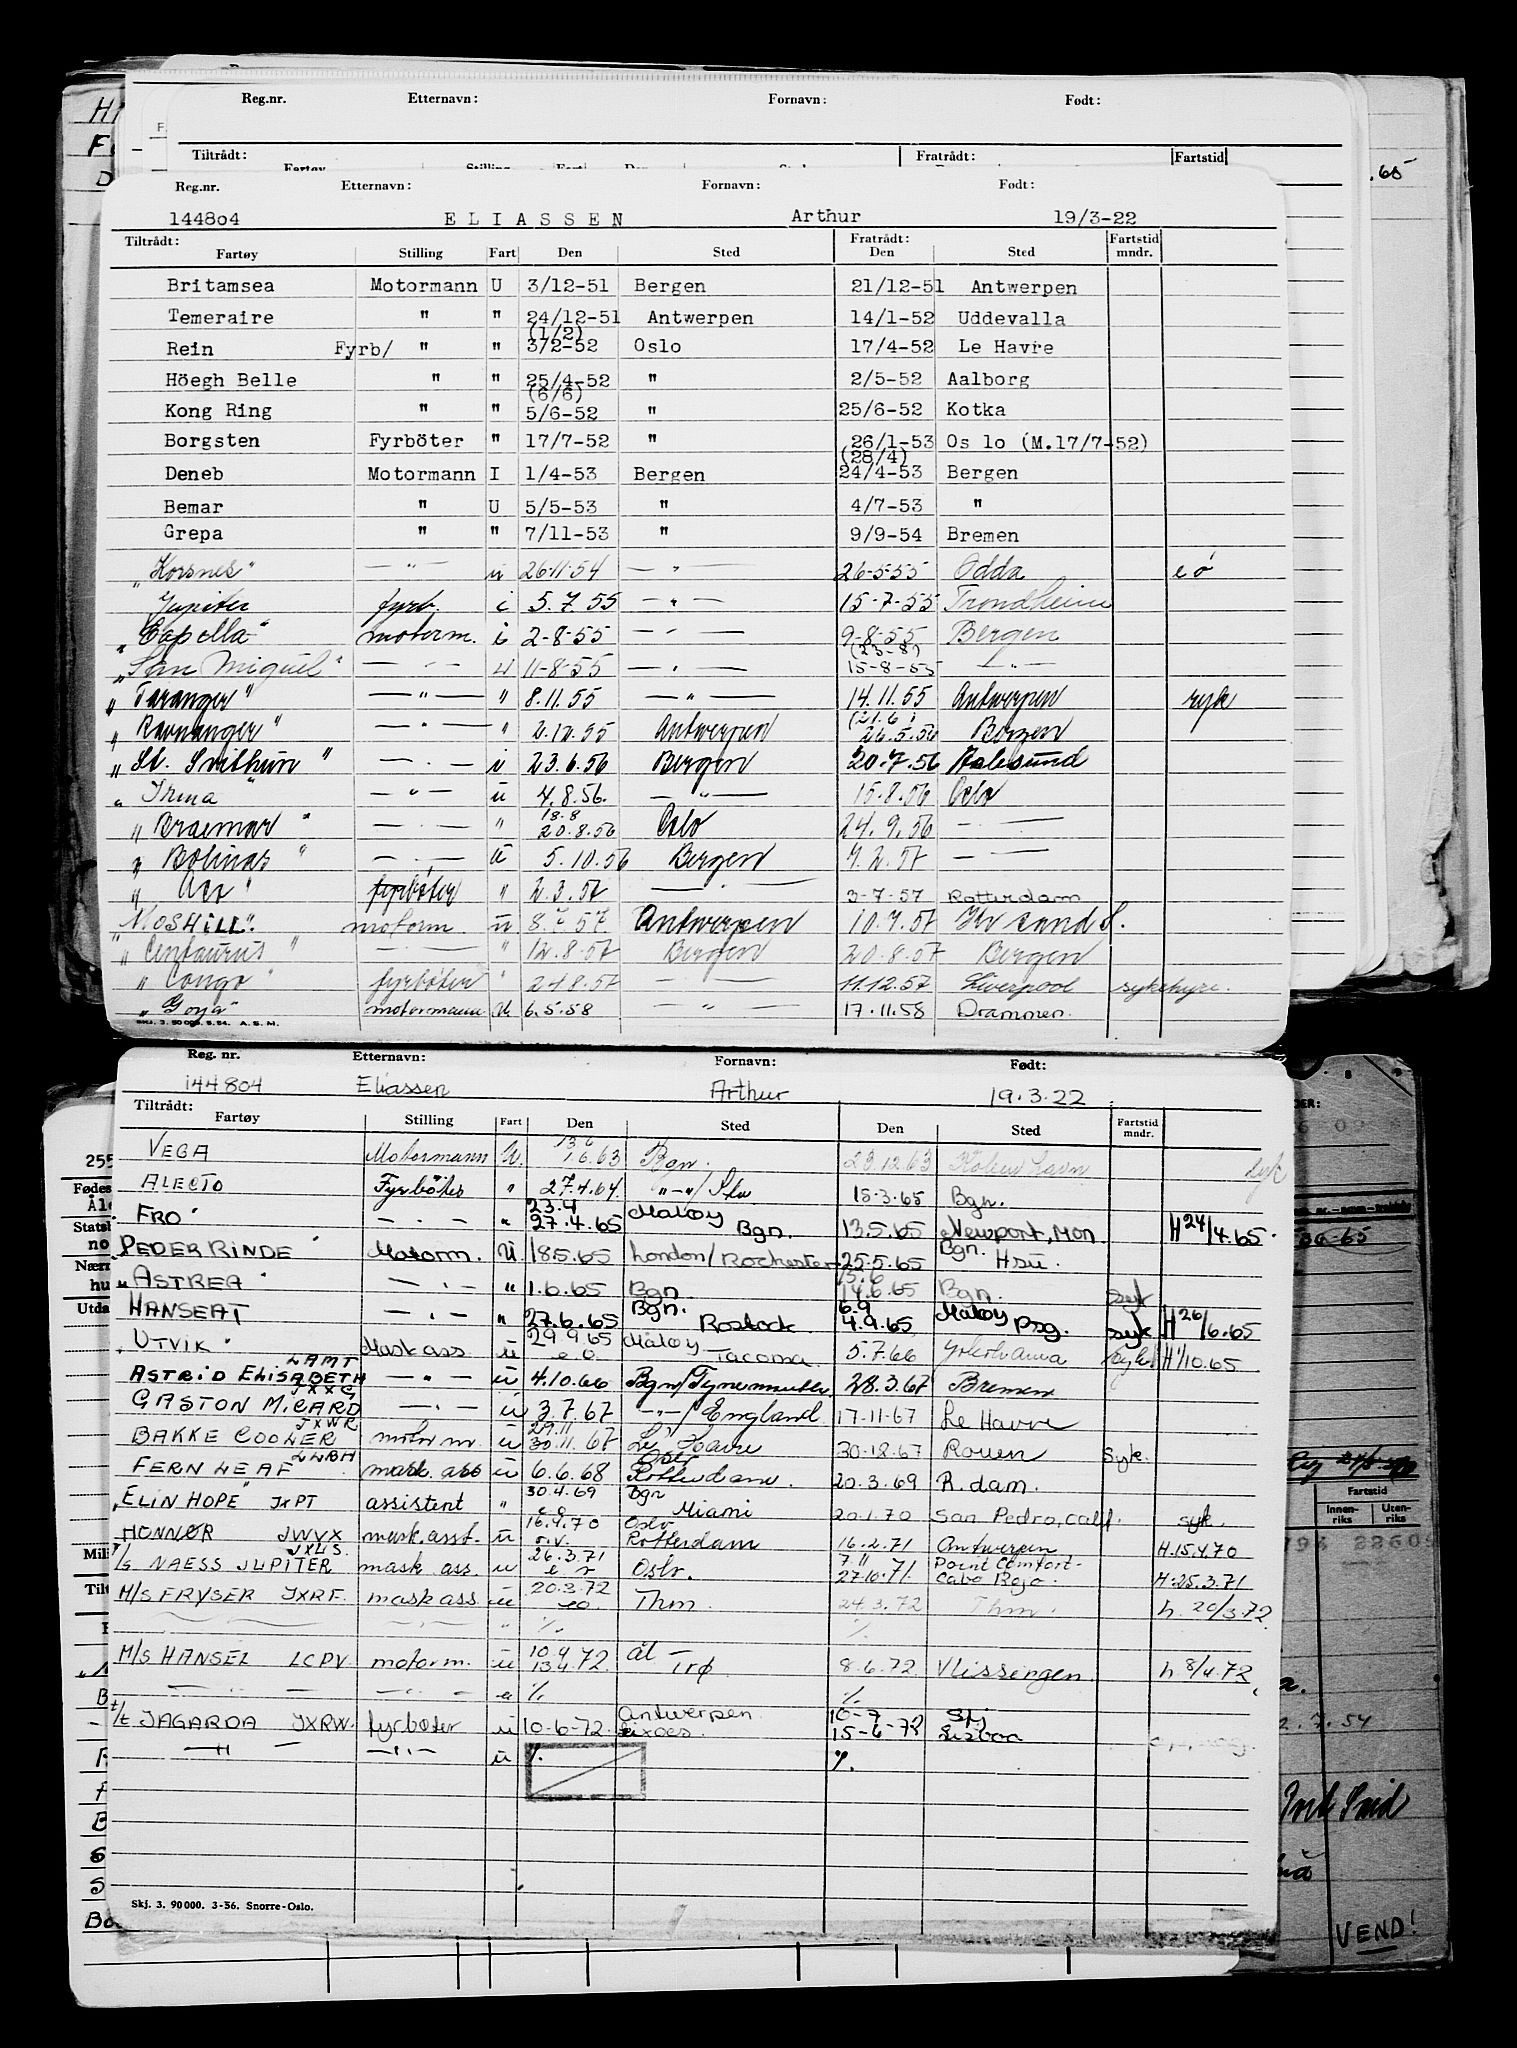 Reg.nr. Etternavn: Fornavn: Født:
Tiltrådt: Fratrådt: Fartstid
.65
Reg.nr. Etternavn: Fornavn: Født:
144804 ELIASSEN Arthur 19/3-22
Tiltrådt: Fratrådt: Fartstid
Fartøy Stilling Fart Den Sted Den Sted mndr.
Britamsea Motormann U 3/12-51 Bergen 21/12-51 Antwerpen
Temeraire " " 24/12-51 Antwerpen 14/1-52 Uddevalla
(1/2)
Rein Fyrb/ " " 3/2-52 Oslo 17/4-52 Le Havre
Höegh Belle " " 25/4-52 " 2/5-52 Aalborg
(6/6)
Kong Ring " " 5/6-52 " 25/6-52 Kotka
Borgsten Fyrböter " 17/7-52 " 26/1-53 Os lo (M.17/7-52)
(28/4)
Deneb Motormann I 1/4-53 Bergen 24/4-53 Bergen
Bemar " U 5/5-53 " 4/7-53 "
Grepa " " 7/11-53 " 9/9-54 Bremen
"Korsnes" — " — u 26-11-54 — " — 26-5-55 Odda e ó
Jupiter fyrb. i 5.7.55 — " — 15-7-55 Trondheim
"Capella" motorm. i 2-8-55 — " — 9-8-55 Bergen
(23-8)
"San Miguel" — " — u 11-8-55 — " — 15-8-55 — " —
"Taranger" — " — " 8.11.55 — " — 14.11.55 Antwerpen syk
(21.6)
"Ravnanger" — " — " 2.12.55 Antwerpen 26.5.56 Bergen
"St. Svithun" — " — i 23.6.56 Bergen 20.7.56 Aalesund
"Irma" — " — u 4.8.56. — " — 15.8.56 Oslo
18.8
"Braemar" — " — " 20.8.56 Oslo 24.9.56 — " —
"Bolinas" — " — u 5.10.56 Bergen 4.2.57 — " —
" " fyrbøter " 2.3.57 — " — 3-7-57 Rotterdam
"MOSHILL". motorm. u 8.7.57. Antwerpen 10.7.57 Kr sand S.
"Centaurus" — " — " 12.8.57 Bergen 20.8.57 Bergen
"Congo" fyrbøter " 24.8.57 — " — 11.12.57 Liverpool sykehyre.
"Goya" motormann u 6.5.58 — " — 17.11.58 Drammen.
Skj. 3. 90 000. 5.54. A.S.M.
Reg. nr. Etternavn: Fornavn: Født:
144804 Eliassen Arthur 19.3.22
Tiltrådt: Fartstid
Fartøy Stilling Fart Den Sted Den Sted mndr.
13.6
VEGA Motormann U. 1.6.63 Bgn. 23.12.63 København syk
ALECTO Fyrbøter " 27.4.64. " — "/ 15.3.65 Bgn.
23.4 Måløy
FRO — " — " 27.4.65 Bgn. 13.5.65 Newport, Mon. H 24/4.65.
PEDER RINDE Motorm. U 18.5.65 London/Rochester 25.5.65 Bgn. Hsu.
15.6
"ASTREA" — " — " 1.6.65 Bgn. 14.6.65 Bgn. syk
Bgn. 6.9 Måløy
HANSEAT — " — " 27.6.65 Rostock 4.9.65 psg. syk H 26/6.65
29.9.65 Måløy
UTVIK Mask ass u e.o. Tacoma 5.7.66 Yokohama syk H 1/10.65
LAMT
ASTRID ELISABETH — " — u 4.10.66 Bgn/Tynemouth 28.3.67 Bremen
JXXG
GASTON MICARD — " — u 3.7.67 — " —/England 17.11.67 Le Havre
JXWR 29.11
BAKKE COOLER motorm. u 30.11.67 Le Havre 30.12.67 Rouen Syk.
LLBH Oslo
FERNLEAF mask. ass u 6.6.68 Rotterdam. 20.3.69 R.dam.
30.4.69 Bgn
"ELIN HOPE" JXPT assistent " e.o. Miami 20.1.70 San Pedro, Calif syk.
16.4.70 Oslo
HONNØR JWVX mask. asst. u o.v. Rotterdam 16.2.71 Antwerpen H.15.4.70
JXLS 26.3.71 7.11 Point Comfort-
T/S NAESS JUPITER mask ass. u e r Oslo. 27.10.71. Cabo Rojo. H.25.3.71
20.3.72
M/S FRYSER JXRF. mask ass u e.o. Thm. 24.3.72 Thm. h. 20/3.72
" %. %.
10.4
M/S HANSEL LCPV. motorm. u 13.4.72 ål Trø 8.6.72 Vlissingen h. 8/4.72
— " — — " — u %. %.
Antwerpen 10-7 Stj
t/t JAGARDA JXRW. fyrbøter u 10-6-72. Leixoes. 15-6-72 Lisboa
— " — — " — u %. %.
Skj. 3. 90 000. 3-56. Snorre-Oslo.
Fartstid
Innen-riks Uten-riks
2.7.54
VEND!